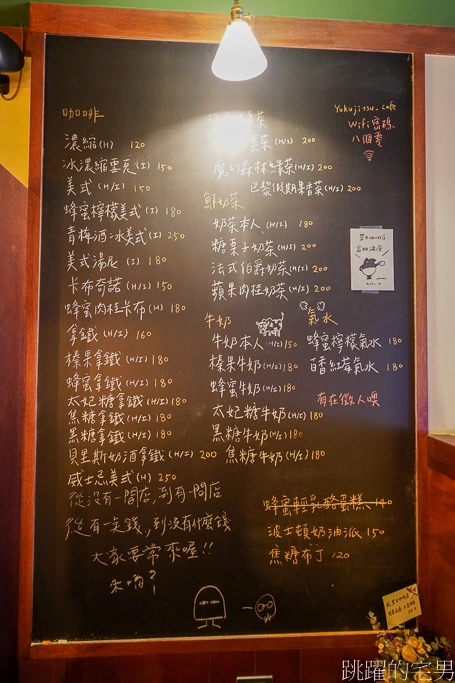 咖啡
濃縮(H) 120
冰濃縮雪克(I) 150
美式(H/I) 150
蜂蜜檸檬美式(I) 180
青梅酒冰美式(I) 250
美式湯尼(I) 180
卡布奇諾(H/I) 150
蜂蜜肉桂卡布(H) 180
拿鐵(H/I) 160
榛果拿鐵(H/I) 180
蜂蜜拿鐵(H/I) 180
太妃糖拿鐵(H/I) 180
焦糖拿鐵(H/I) 180
黑糖拿鐵(H/I) 180
貝里斯奶酒拿鐵(H/I) 200
威士忌美式(H) 250
從沒有一間店,到有一間店
從有一點錢,到沒有什麼錢
大家要常來喔!!
茶
茶(H/I) 200
森林綠茶(H/I) 200
巴黎假期果香茶(H/I) 200
鮮奶茶
奶茶本人(H/I) 180
糖栗子奶茶(H/I) 200
法式伯爵奶茶(H/I) 200
蘋果肉桂奶茶(H/I) 200
牛奶
牛奶本人(H/I) 150
榛果牛奶(H/I) 180
蜂蜜牛奶(H/I) 180
太妃糖牛奶(H/I) 180
黑糖牛奶(H/I) 180
焦糖牛奶(H/I) 180
Yokujitsu_cafe
Wifi密碼
八個零
氣水
蜂蜜檸檬氣水 180
百香紅莓氣水 180
有在徵人噢
蜂蜜輕乳酪蛋糕 140
波士頓奶油派 150
焦糖布丁 120
跳躍的宅男